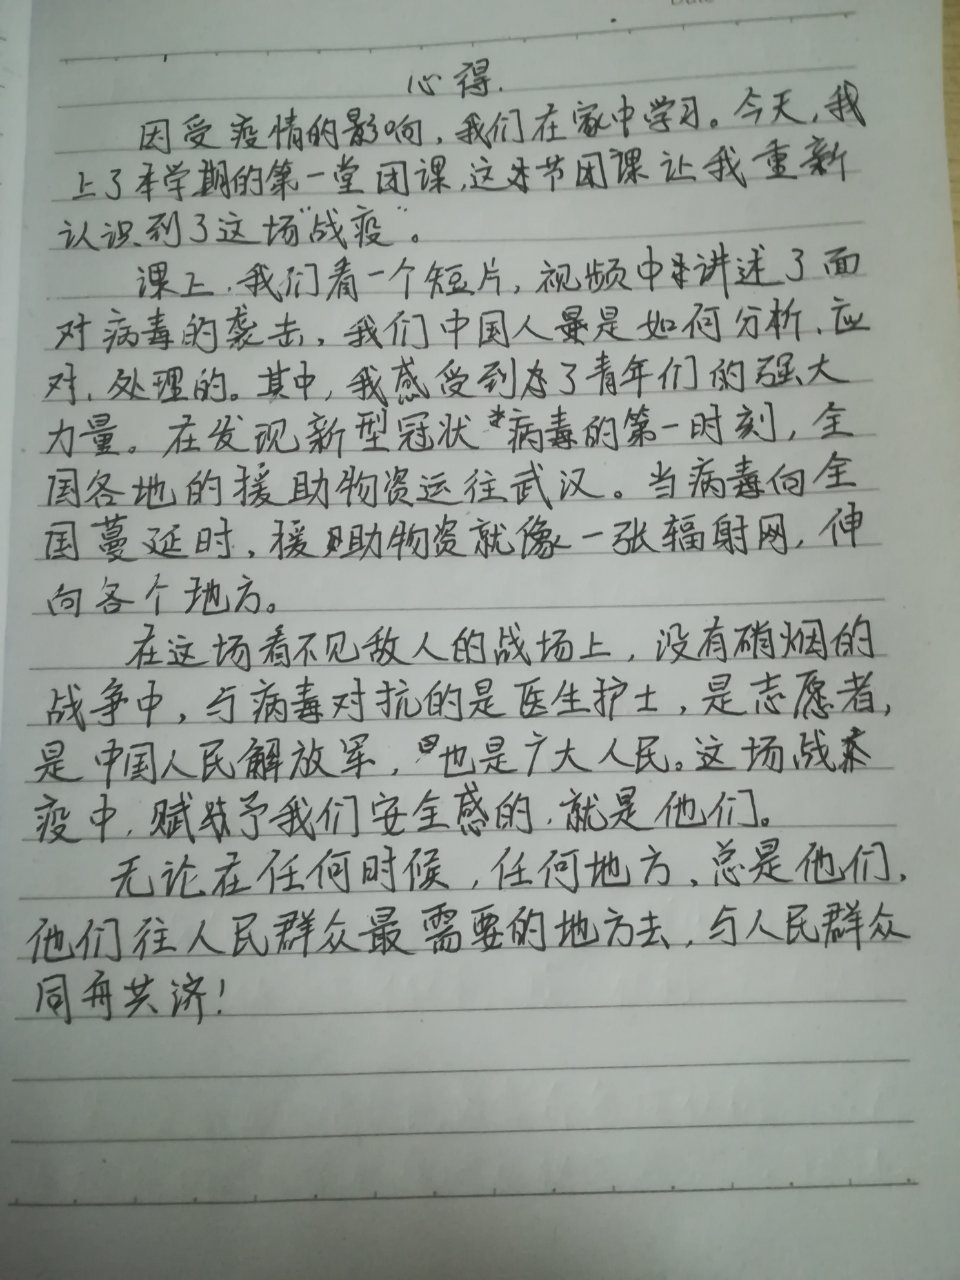 心得.
因受疫情的影响,我们在家中学习。今天,我
上了本学期的第一堂团课,这节团课让我重新
认识到了这场"战疫"。
课上,我们看一个短片,视频中讲述了面
对病毒的袭击,我们中国人是如何分析、应
对、处理的。其中,我感受到了青年们的强大
力量。在发现新型冠状病毒的第一时刻,全
国各地的援助物资运往武汉。当病毒向全
国蔓延时,援助物资就像一张辐射网,伸
向各个地方。
在这场看不见敌人的战场上,没有硝烟的
战争中,与病毒对抗的是医生护士,是志愿者,
是中国人民解放军,也是广大人民。这场战
疫中,赋予我们安全感的,就是他们。
无论在任何时候,任何地方,总是他们,
他们往人民群众最需要的地方去,与人民群众
同舟共济!